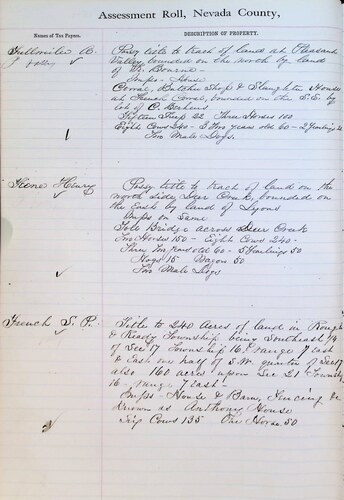 Assessment Roll, Nevada County,
Names of Tax Payers.
DESCRIPTION OF PROPERTY.
Possy title to tract of land at Pleasant
Valley, bounded on the north by land
of
Imps - House
Corral, Butcher Shop & Slaughter House
at French Corral, bounded on the S.E. by
lot of C.
Fifteen Sheep 22 Three Horses 110
Eight Cows 240 - 3 Two years old 60 - 2 Yearlings
Two Male Hogs.
Henry
Possy title to tract of land on the
north side, Deer Creek, bounded on
the East by land of Lyons
Imps on Same
Tole Bridge across Deer Creek
Two Horses 150 - Eight Cows 240 -
Three Two Years old 60 - 5 Yearlings 50
Hogs 15 Wagon 50
Two Male Hogs
French S. P.
Title to 240 acres of land in Rough
& Ready Township being Southeast 1/4
of Sec 17 Township 16 N range 7 East
& East one half of S.W. quarter of Sec 17
also 160 acres upon Sec 21 Township
16 - range 7 East -
Imps - House & Barn, Fencing &c
known as Anthony House
Six Cows 135 One Horse 50